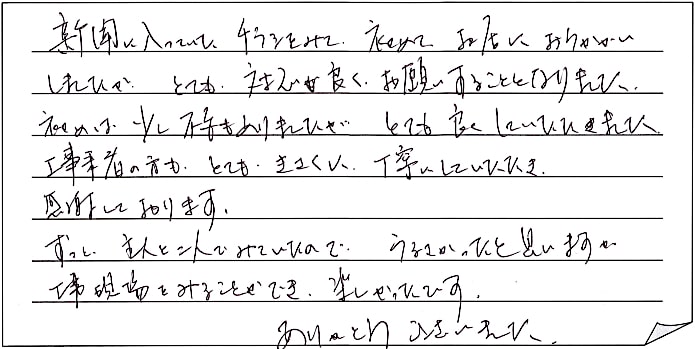 新聞に入っていた チラシをみて、初めて お店に おうかがい
しましたが、とても、対応が良く、お願いすることとなりました。
初めは、少し不安もありましたが とても 良くしていただきました。
工事業者の方も、とても、きさくに、丁寧にしていただき、
感謝しております。
ずっと、主人と二人でみていたので、うるさかったと思いますが
工事現場をみることができ、楽しかったです。
ありがとうございました。